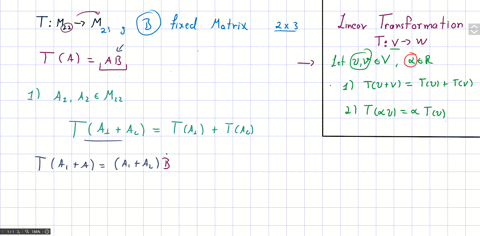 T: M22 → M23, B fixed Matrix 2x3
T(A) = AB
1) A1, A2 ∈ M22
T(A1 + A2) = T(A1) + T(A2)
T(A1 + A) = (A1 + A2) B
Linear Transformation
T: V → W
→ let u, v ∈ V, α ∈ R
1) T(u+v) = T(u) + T(v)
2) T(αu) = α T(u)